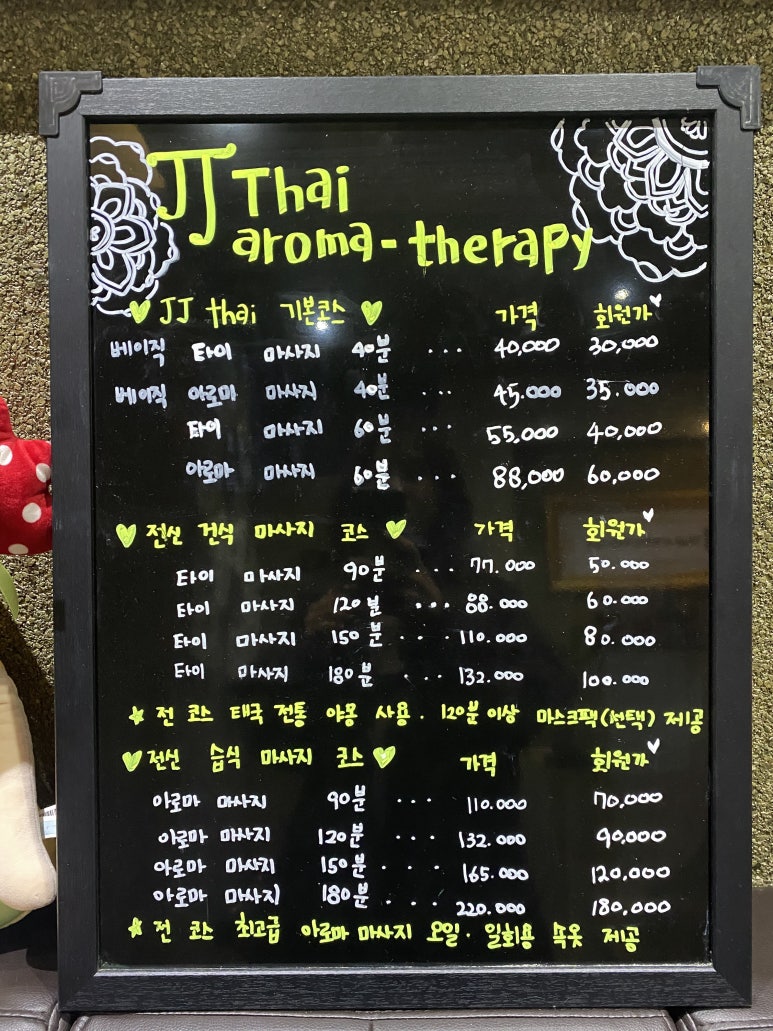 JJ Thai
aroma-therapy
JJ thai 기본코스 가격 회원가
베이직 타이 마사지 40분 ... 40,000 30,000
베이직 아로마 마사지 40분 ... 45.000 35.000
타이 마사지 60분 ... 55,000 40,000
아로마 마사지 60분 ... 88,000 60,000
전신 건식 마사지 코스 가격 회원가
타이 마사지 90분 ... 77.000 50.000
타이 마사지 120분 ... 88.000 60.000
타이 마사지 150분 ... 110.000 80.000
타이 마사지 180분 ... 132.000 100.000
☆ 전 코스 태국 전통 야몽 사용. 120분 이상 마스크팩(선택) 제공
전신 습식 마사지 코스 가격 회원가
아로마 마사지 90분 ... 110.000 70,000
아로마 마사지 120분 ... 132.000 90,000
아로마 마사지 150분 ... 165.000 120,000
아로마 마사지 180분 ... 220.000 180,000
☆ 전 코스 최고급 아로마 마사지 오일. 일회용 속옷 제공